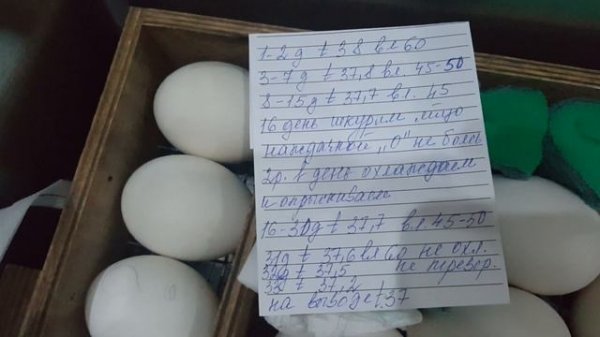 1-2д t 38 вл 60
3-7д t 37,8 вл. 45-50
8-15д t 37,7 вл. 45
16 день шкурим яйцо
наждачной „0" не более
2р. в день охлаждаем
и опрыскиваем
16-30д t 37,7 вл 45-50
31д t 37,6 вл 60 не охл.
32д t 37,5 не перевор.
33 t 37,2
на выводе t 37